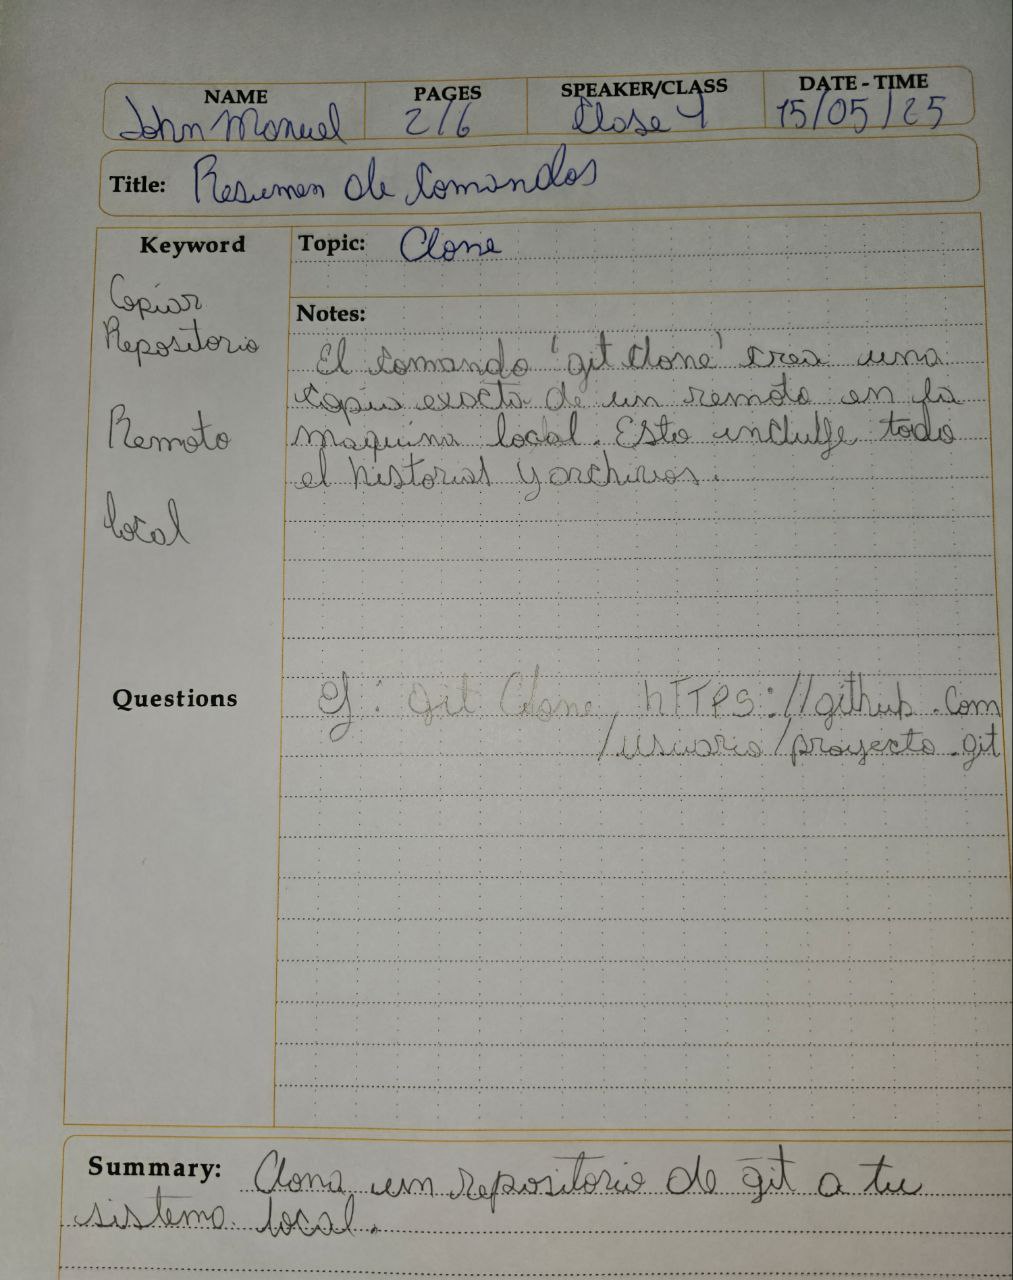 NAME PAGES SPEAKER/CLASS DATE - TIME
John Manuel 2/6 Clase 4 15/05/25
Title: Resumen de Comandos
Keyword
Topic: Clone
Copiar
Repositorio
Remoto
local
Notes:
El comando 'git clone' crea una
copia exacta de un remoto en la
maquina local. Esto incluye todo
el historial y archivos.
Questions
Ej: git Clone, hTTPS://github.com
/usuario/proyecto.git
Summary: Clona un repositorio de git a tu
sistema local.